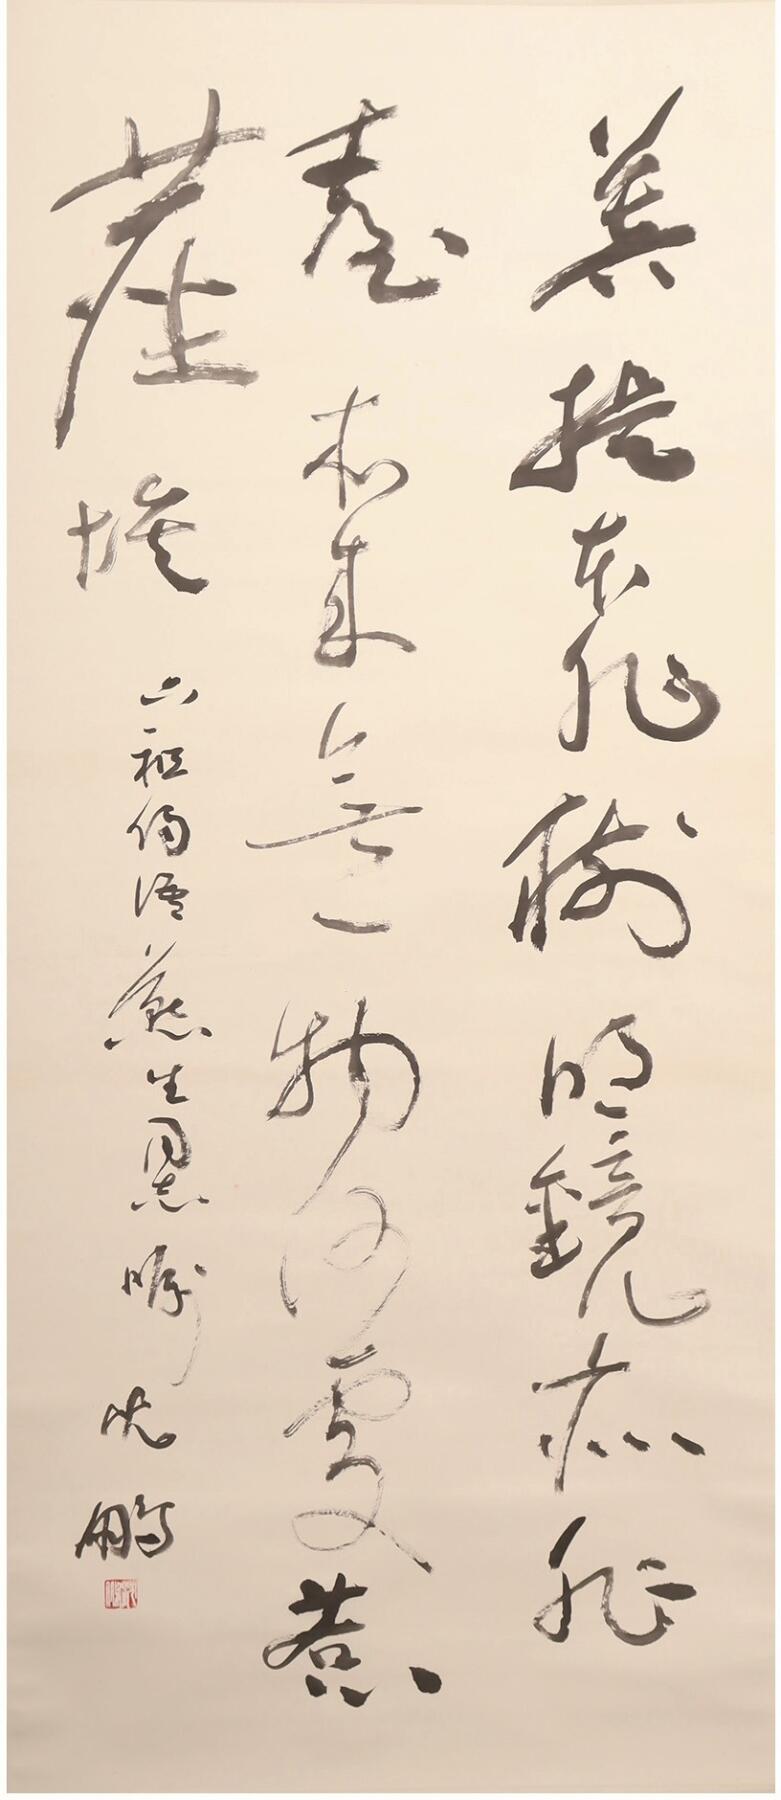 菩提本非樹明鏡亦非
臺本來無一物何處惹
塵埃
六祖偈語生同志囑沈鵬